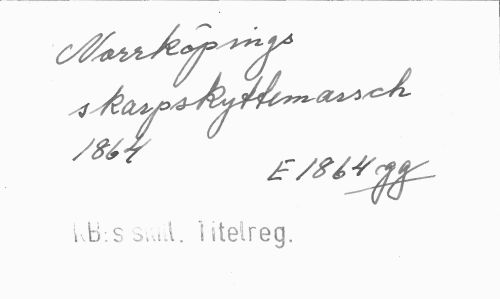 Norrköpings
skarpskyttemarsch
1864
E 1864 gg
KB:s saml. Titelreg.